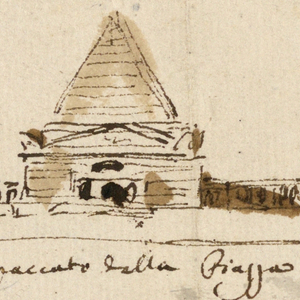 paccato della Piazza